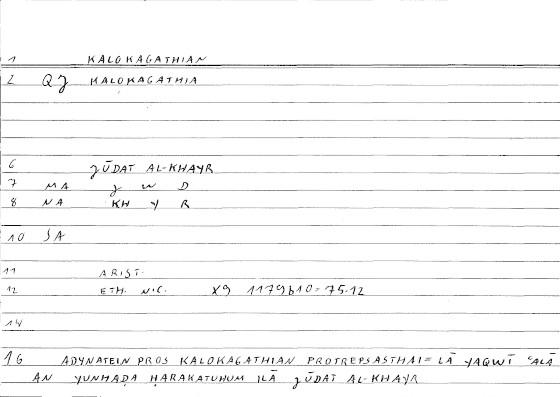 1 KALOKAGATHIAN
2 QJ KALOKAGATHIA
6 JŪDAT AL-KHAYR
7 MA J W D
8 NA KH Y R
10 SA
11 ARIST.
12 ETH. NIC. X9 1179b10 = 75.12
14
16 ADYNATEIN PROS KALOKAGATHIAN PROTREPSASTHAI = LĀ YAQWĪ ʿALĀ
AN YUNHAḌA ḤARAKATUHUM ILĀ JŪDAT AL-KHAYR